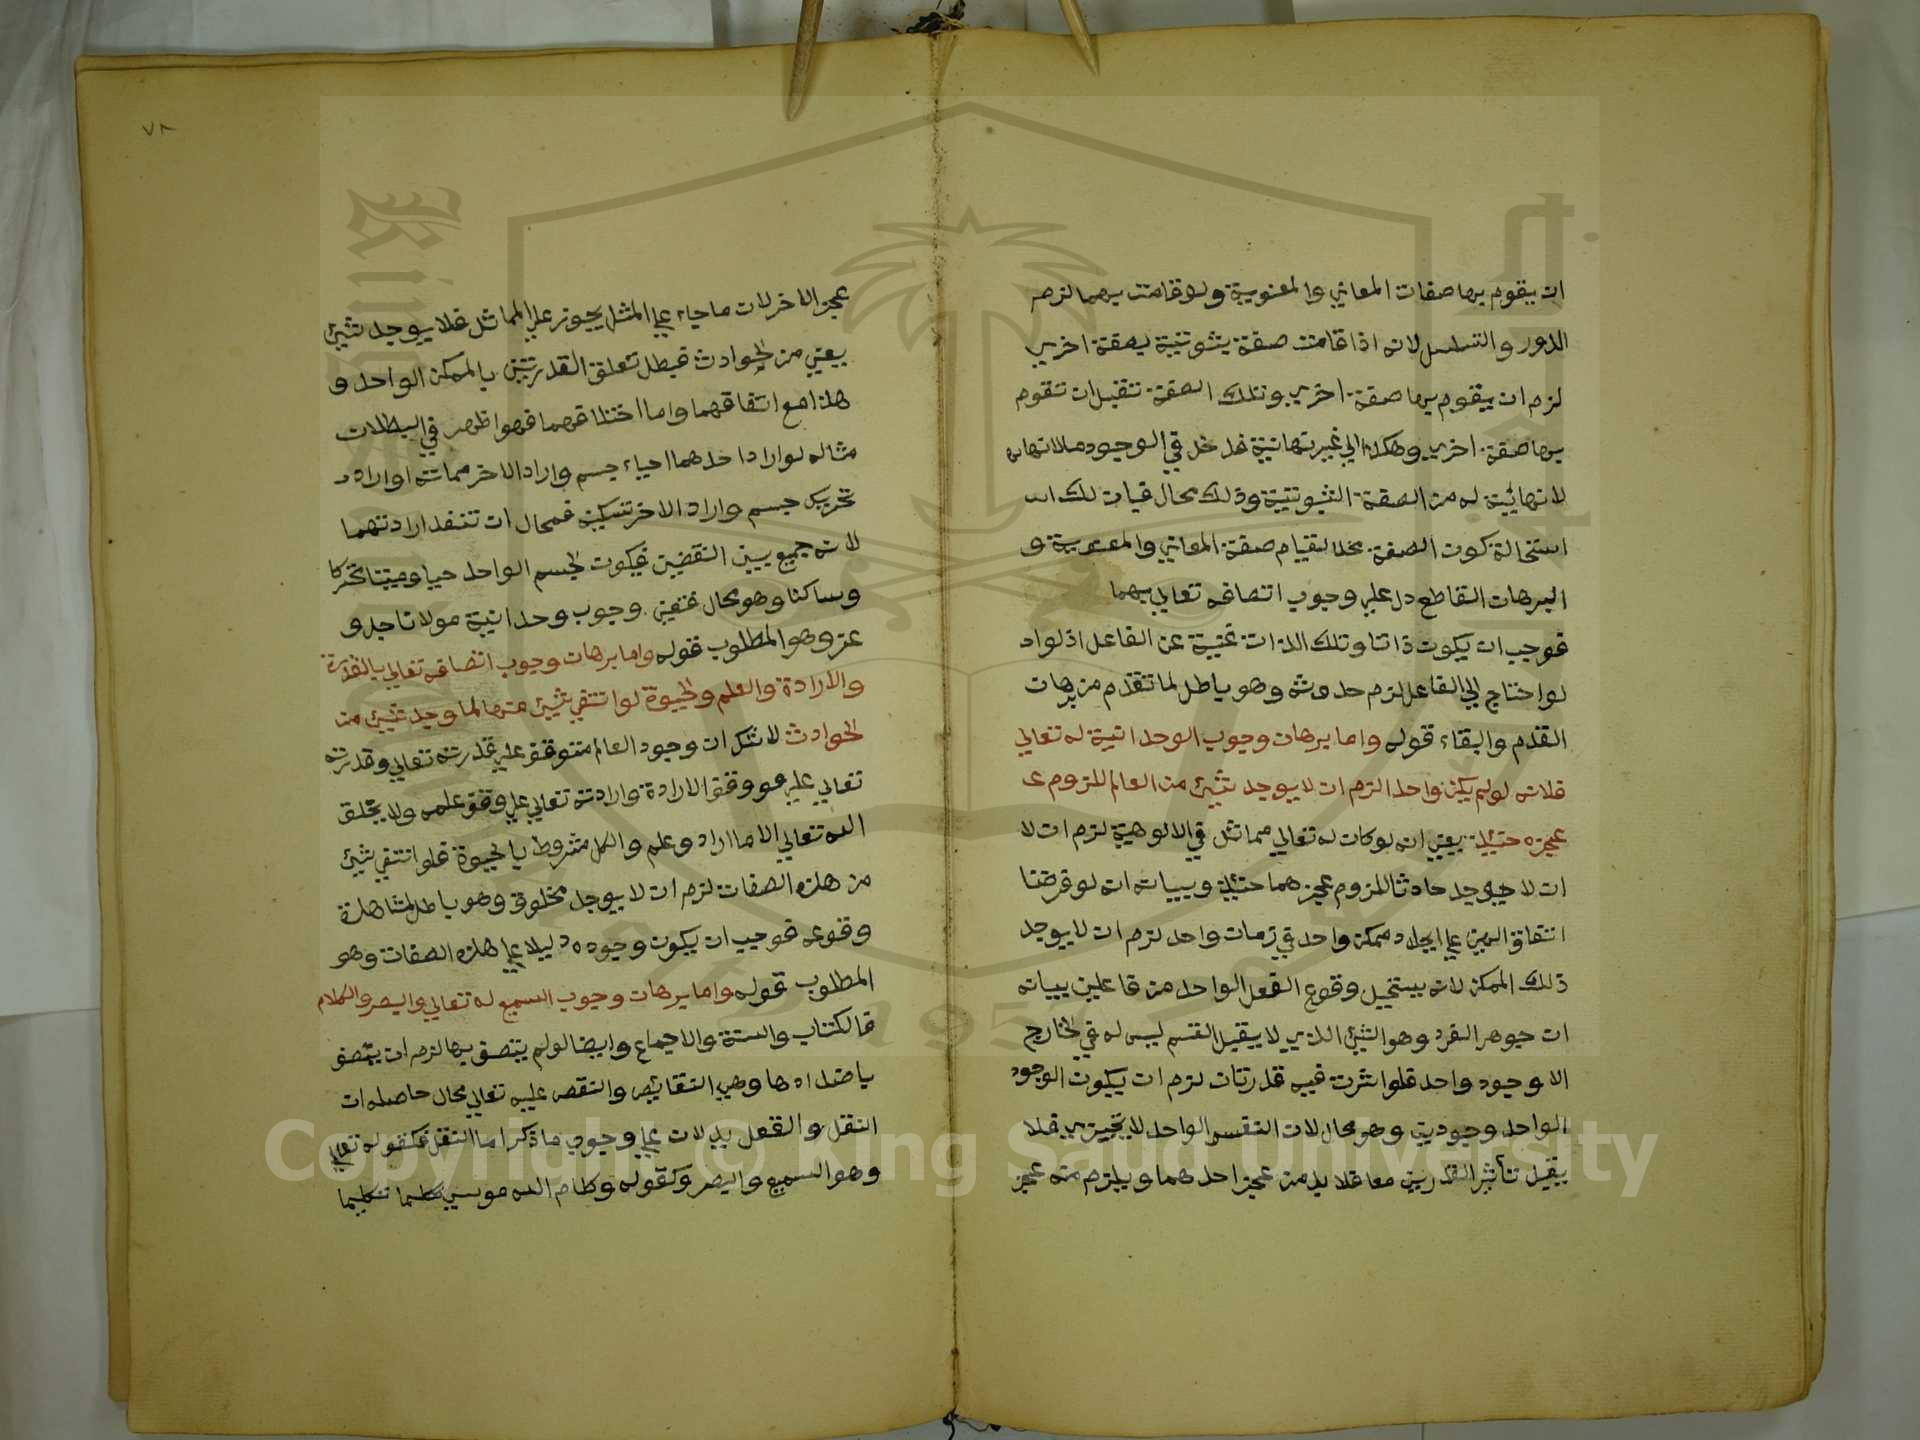 ان يقوم بها صفات المعاني والمعنوية ولو قامت بهما لزم
الدور والتسلسل لانه اذا قامت صفة ثبوتية بصفة اخري
لزم ان يقوم بها صفة اخري وتلك الصفة تقبل ان تقوم
بها صفة اخري وهكذا الي غير نهاية فدخل في الوجود ما لا نهاية
لانهائية له من الصفة الثبوتية وذلك محال فبان لك ان
استحالة كون الصفة محلا لقيام صفة المعاني والمعنوية و
البرهان القاطع دل علي وجوب اتصافه تعالي بهما
فوجب ان يكون ذاتا وتلك الذات غنية عن الفاعل اذ لواد
لواحتاج الي الفاعل لزم حدوثه وهو باطل لما تقدم من برهان
القدم والبقاء قوله واما برهان وجوب الوحدانية له تعالي
فلانه لو لم يكن واحدا لزم ان لا يوجد شيئ من العالم للزوم ى
عجزه حنيئذ يعني انه لو كان له تعالي مماثل في الالوهية لزم ان لا
ان لا يوجد حادثا للزوم عجزهما حنيئذ وبيانه انه لو فرضنا
اتفاق الهين علي ايجاد ممكن واحد في زمان واحد لزم ان لا يوجد
ذلك الممكن لانه يستحيل وقوع الفعل الواحد من فاعلين بيانه
ان جوهر الفرد وهو الشيئ الذي لا يقبل القسم ليس له في الخارج
الا وجود واحد فلو اثرت فيه قدرتان لزم ان يكون الوجود
الواحد وجودين وهو محال لان النفس الواحد لا يتجزي فلا
يقبل تأثير القدرتين معا فلا بد من عجز احدهما ويلزم منه عجز
٧٨
عجز الاخر لان ما جاء علي المثل يجوز علي المماثل فلا يوجد شيئ
يعني من الحوادث فبطل تعلق القدرتين بالممكن الواحد و
هذا مع اتفاقهما واما اختلافهما فهو اظهر في البطلان
مثاله لو اراد احدهما احياء جسم واراد الاخر مماته او اراد
تحريك جسم واراد الاخر تسكينه فمحال ان تنفد ارادتهما
لانه جميع بين النقضين فيكون الجسم الواحد حيا وميتا متحركا
وساكنا وهو محال فتعين وجوب وحدانية مولانا جل و
عز وهو المطلوب قوله واما برهان وجوب اتصافه تعالي بالقدرة
والارادة والعلم والحيوة لو انتفي شيئ منها لما وجد شيئ من
الحوادث لا شك ان وجود العالم متوقف علي قدرته تعالي وقدرته
تعالي علي وفق الارادة وارادته تعالي علي وفق علمه ولا يخلق
الله تعالي الا ما اراد وعلم والكل مشروط بالحيوة فلو انتفي شيئ
من هذه الصفات لزم ان لا يوجد مخلوق وهو باطل لمشاهدة
وقوعه فوجب ان يكون وجوده دليلا علي هذه الصفات وهو
المطلوب قوله واما برهان وجوب السميع له تعالي والبصر والكلام
فالكتاب والسنة والاجماع وايضا لو لم يتصف بها لزم ان يتصف
باضدادها وهي النقائص والنقص عليه تعالي محال حاصله ان
النقل والفعل يدلان علي وجوب ما ذكر اما النقل فكقوله تعالي
وهو السميع والبصر وكقوله وكلم الله موسي تكليما
Copyright © King Saud University
1957